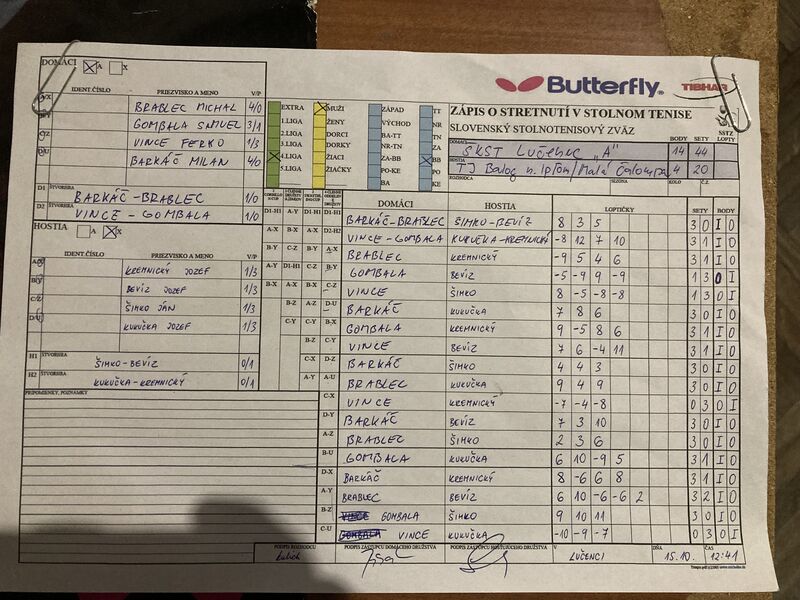 DOMÁCI A X
Butterfly TIBHAR
IDENT.ČÍSLO PRIEZVISKO A MENO V/P
A/X BRABLEC MICHAL 4/0
GOMBALA SAMUEL 3/1
VINCE FERKO 1/3
BARKÁČ MILAN 4/0
D1 ŠTVORHRA BARKÁČ-BRABLEC 1/0
D2 VINCE-GOMBALA 1/0
EXTRA MUŽI ZÁPAD TT
1.LIGA ŽENY VÝCHOD NR
2.LIGA DORCI BA-TT TN
3.LIGA DORKY NR-TN ZA
4.LIGA ŽIACI ZA-BB BB
5.LIGA ŽIAČKY PO-KE PO
BA KE
ZÁPIS O STRETNUTÍ V STOLNOM TENISE
SLOVENSKÝ STOLNOTENISOVÝ ZVÄZ BODY SETY SSTZ LOPTY
DOMÁCI SKST Lučenec "A" 14 44
HOSTIA TJ Balog n. Ipľom/Malá Čalomija 4 20
ROZHODCA SEZONA KOLO Č.Z.
HOSTIA A X
IDENT.ČÍSLO PRIEZVISKO A MENO V/P
KREMNICKÝ JOZEF 1/3
BEVÍZ JOZEF 1/3
ŠIMKO JÁN 1/3
KUKUČKA JOZEF 1/3
H1 ŠTVORHRA ŠIMKO-BEVÍZ 0/1
H2 ŠTVORHRA KUKUČKA-KREMNICKÝ 0/1
PRIPOMIENKY, POZNÁMKY
DOMÁCI HOSTIA LOPTIČKY SETY BODY
D1-H1 A-Y D1-H1 D1-H1 BARKÁČ-BRABLEC ŠIMKO-BEVÍZ 8 3 5 3 0 1 0
A-X B-X A-X D2-H2 VINCE-GOMBALA KUKUČKA-KREMNICKÝ -8 12 7 10 3 1 1 0
B-Y C-Z B-Y A-X BRABLEC KREMNICKÝ -9 5 4 6 3 1 1 0
A-Y D1-H1 C-Z B-Y GOMBALA BEVÍZ -5 -9 9 -9 1 3 0 1
B-X A-X B-X C-Z VINCE ŠIMKO 8 -5 -8 -8 1 3 0 1
B-Z A-Z D-U BARKÁČ KUKUČKA 7 8 6 3 0 1 0
C-Y C-Y B-X GOMBALA KREMNICKÝ 9 -5 8 6 3 1 1 0
B-Z C-Y VINCE BEVÍZ 7 6 -4 11 3 1 1 0
C-X D-Z BARKÁČ ŠIMKO 4 4 3 3 0 1 0
A-Y A-U BRABLEC KUKUČKA 9 4 9 3 0 1 0
C-X VINCE KREMNICKÝ -7 -4 -8 0 3 0 1
D-Y BARKÁČ BEVÍZ 7 3 10 3 0 1 0
A-Z BRABLEC ŠIMKO 2 3 6 3 0 1 0
B-U GOMBALA KUKUČKA 6 10 -9 5 3 1 1 0
D-X BARKÁČ KREMNICKÝ 8 -6 6 8 3 1 1 0
A-Y BRABLEC BEVÍZ 6 10 -6 -6 2 3 2 1 0
B-Z VINCE GOMBALA ŠIMKO 9 10 11 3 0 1 0
C-U GOMBALA VINCE KUKUČKA -10 -9 -7 0 3 0 1
PODPIS ROZHODCU PODPIS ZÁSTUPCU DOMÁCEHO DRUŽSTVA PODPIS ZÁSTUPCU HOSŤUJÚCEHO DRUŽSTVA V LUČENCI DŇA 15.10. ČAS 12:41